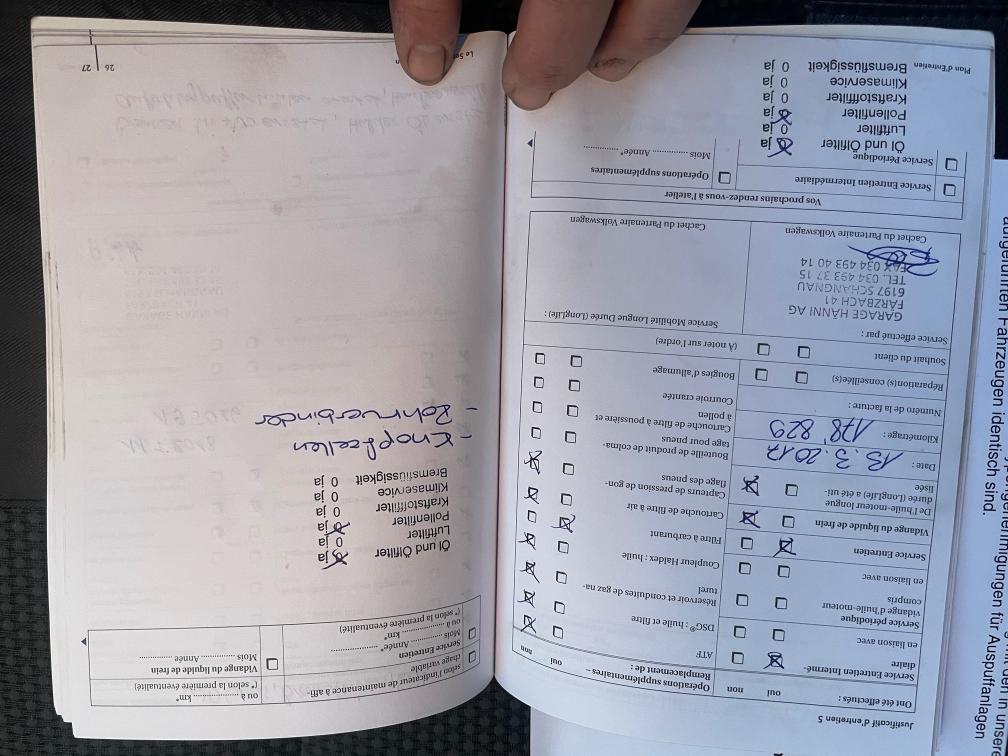 Justificatif d'entretien 5
Ont été effectués :
oui non
Service Entretien Intermédiaire
en liaison avec
Service périodique
vidange d'huile-moteur
compris
en liaison avec
Service Entretien
Vidange du liquide de frein
De l'huile-moteur longue
durée (LongLife) a été utilisée
Date : 13.3.2017
Kilométrage : 178'829
Numéro de la facture :
Réparation(s) conseillée(s)
Souhait du client
(A noter sur l'ordre)
Service effectué par :
GARAGE HÄNNI AG
FÄRZBACH 41
6197 SCHANGNAU
TEL. 034 493 37 15
FAX 034 493 40 14
Cachet du Partenaire Volkswagen
Opérations supplémentaires –
Remplacement de :
oui non
ATF
DSG® : huile et filtre
Réservoir et conduites de gaz naturel
Coupleur Haldex : huile
Filtre à carburant
Cartouche de filtre à air
Capteurs de pression de gonflage des pneus
Bouteille de produit de colmatage pour pneus
Cartouche de filtre à poussière et
à pollen
Courroie crantée
Bougies d'allumage
Service Mobilité Longue Durée (LongLife) :
Cachet du Partenaire Volkswagen
Vos prochains rendez-vous à l'atelier
Service Entretien Intermédiaire
Service Périodique
Opérations supplémentaires
Mois .............. Année* ..............
Öl und Ölfilter 0 ja
Luftfilter 0 ja
Pollenfilter 0 ja
Kraftstofffilter 0 ja
Klimaservice 0 ja
Bremsflüssigkeit 0 ja
Plan d'Entretien
selon l'indicateur de maintenance à affichage variable
Service Entretien
Mois .............. Année* ..............
ou à .............. km*
(* selon la première éventualité)
ou à .............. km*
(* selon la première éventualité)
Vidange du liquide de frein
Mois .............. Année ..............
Öl und Ölfilter 0 ja
Luftfilter 0 ja
Pollenfilter 0 ja
Kraftstofffilter 0 ja
Klimaservice 0 ja
Bremsflüssigkeit 0 ja
- Knopfzellen
- Rohrverbinder
26 27
aufgeführten Fahrzeugen identisch sind.
für Auspuffanlagen